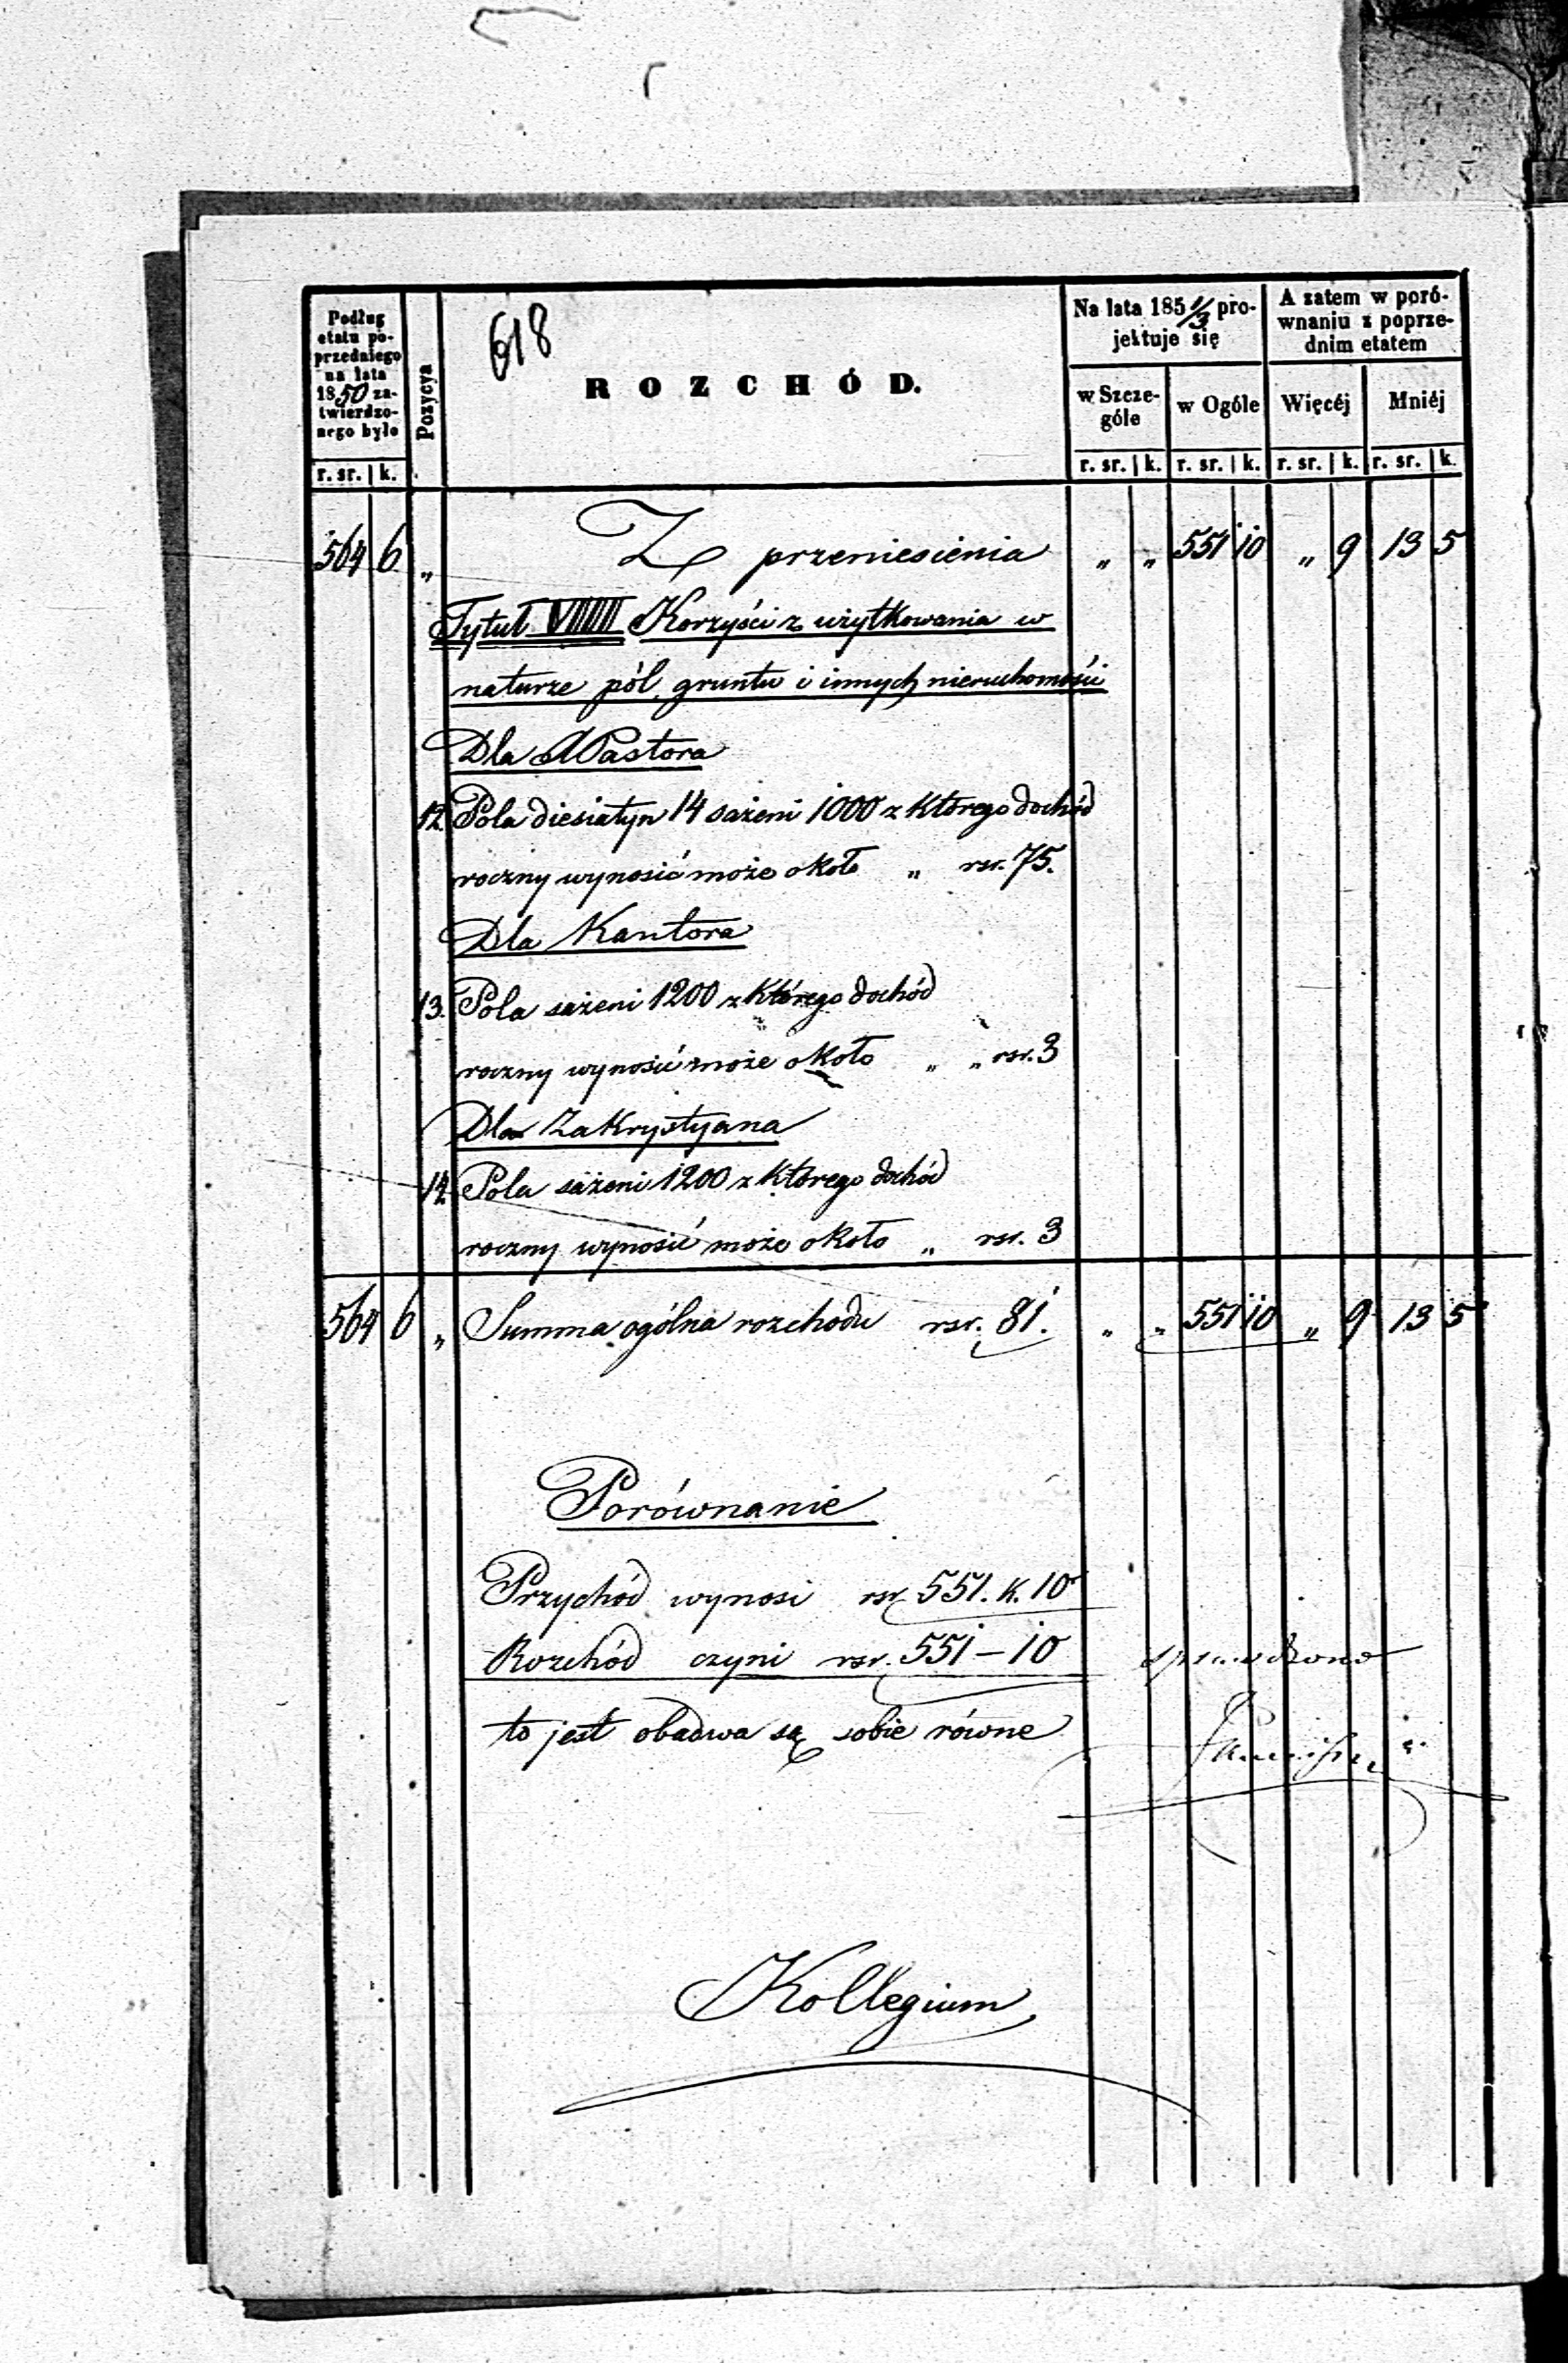 618
Podług
etatu po-
przedniego
na lata
1850 za-
twierdzo-
nego było
r. sr. | k.
Pozycya
ROZCHÓD.
Na lata 185 1/3 pro-
jektuje się
w Szcze-
góle
w Ogóle
r. sr. | k. r. sr. | k.
A zatem w poró-
wnaniu z poprze-
dnim etatem
Więcéj
Mniéj
r. sr. | k. r. sr. | k.
564 6 „ Z przeniesienia „ „ 551 10 „ 9 13 5
Tytuł VIIII Korzyści z użytkowania w
naturze pól, gruntu i innych nieruchomości
Dla Pastora
12. Pola diesiatyn 14 sażeni 1000 z którego dochód
roczny wynosić może około „ rsr. 75.
Dla Kantora
13. Pola sażeni 1200 z którego dochód
roczny wynosić może około „ „ rsr. 3
Dla Zakrystyana
14 Pola sażeni 1200 z którego dochód
roczny wynosić może około „ rsr. 3
564 6 „ Summa ogólna rozchodu rsr. 81. „ „ 551 10 „ 9 13 5
Porównanie
Przychód wynosi rsr. 551. k. 10
Rozchód czyni rsr. 551 – 10
sprawdzono
to jest obadwa są sobie równe
Kollegium